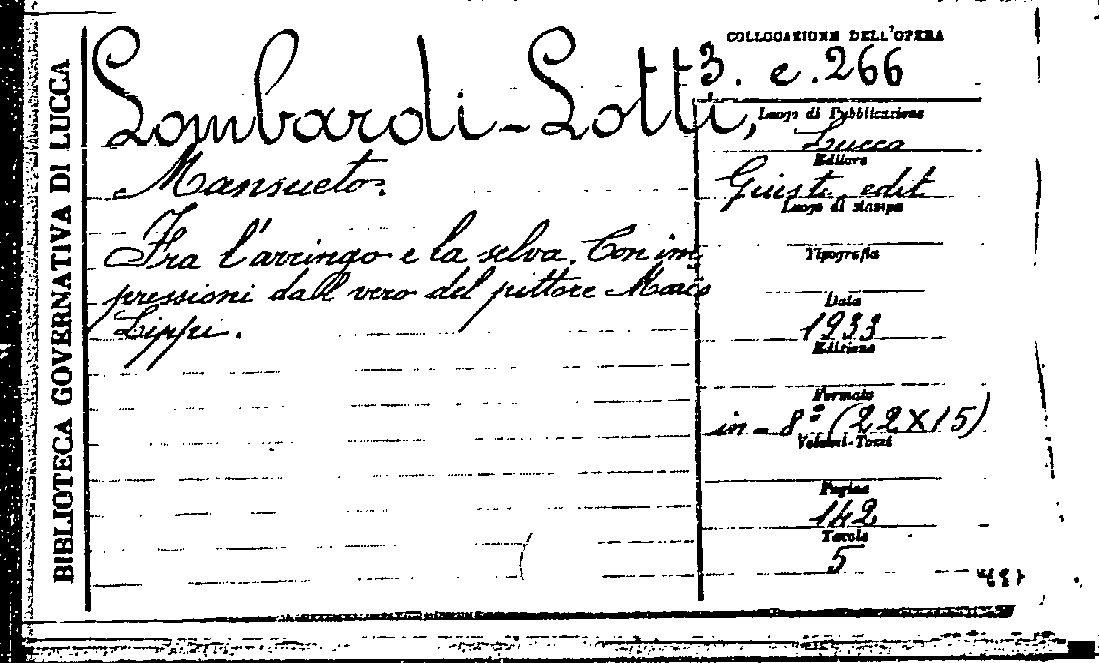 BIBLIOTECA GOVERNATIVA DI LUCCA
Lombardi-Lotti,
Mansueto.
Fra l'arringo e la selva. Con im
pressioni dall vero del pittore
Lippi.
COLLOCAZIONE DELL'OPERA
3. e. 266
Luogo di Pubblicazione
Lucca
Editore
Giusti edit
Luogo di stampa
Tipografia
Data
1933
Edizione
Formato
in-8º (22X15)
Volumi-Tomi
Pagine
142
Tavole
5